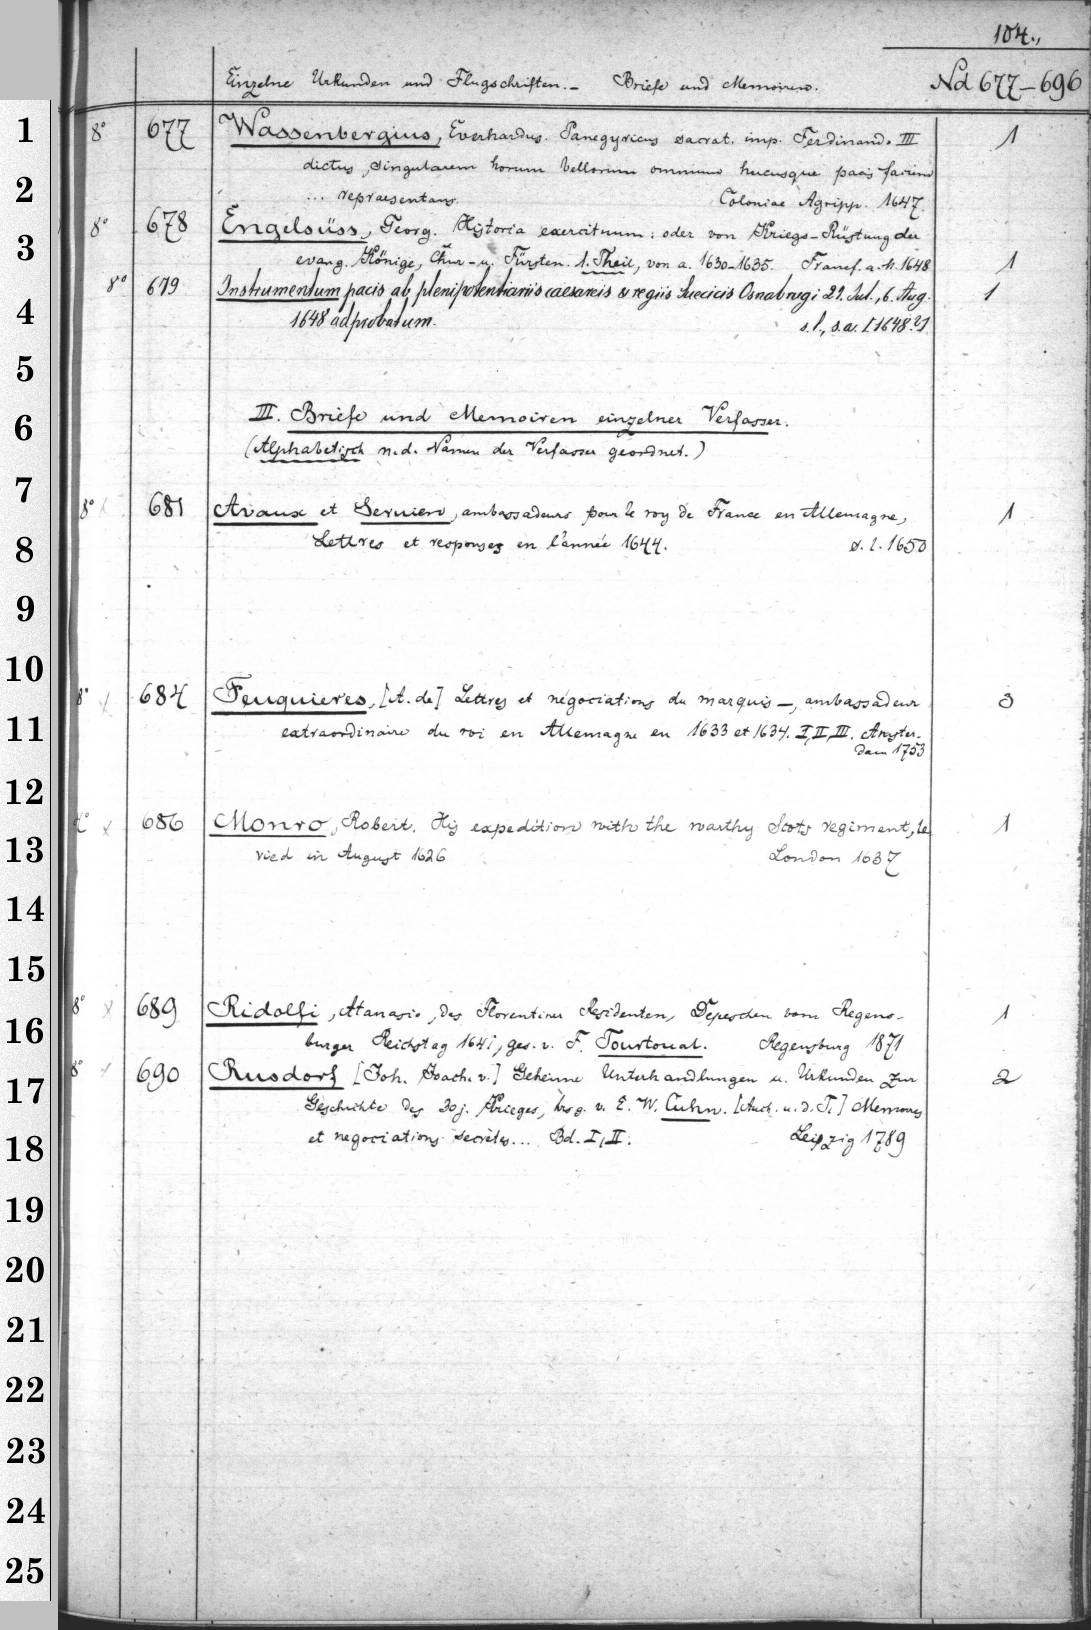 104.,
Einzelne Urkunden und Flugschriften. – Briefe und Memoiren. Nd 677–696
1 8° 677 Wassenbergius, Everhardus. Panegyricus sacrat. imp. Ferdinand. III 1
dictus, singularem horum bellorum omnium hucusque pacis faciem
2 ... repraesentans. Coloniae Agripp. 1647.
8° 678 Engelsüss, Georg. Historia exercituum: oder von Kriegs-Rüstung der
3 evang. Könige, Chur- u. Fürsten. 1. Theil, von a. 1630–1635. Francf. a. M. 1648 1
8° 679 Instrumentum pacis ab plenipotentiariis caesareis & regiis Suecicis Osnabrugi 29. Jul., 6. Aug. 1
4 1648 adprobatum. s. l., s. a. [1648?]
5
6 III. Briefe und Memoiren einzelner Verfasser.
(Alphabetisch n. d. Namen der Verfasser geordnet.)
7
8° 681 Avaux et Servien, ambassadeurs pour le roy de France en Allemagne, 1
8 Lettres et responses en l'année 1644. s. l. 1650
9
10
8° 684 Feuquieres, [A. de] Lettres et négociations du marquis –, ambassadeur 3
11 extraordinaire du roi en Allemagne en 1633 et 1634. I, II, III. Amster-
dam 1753
12
686 Monro, Robert. His expedition with the worthy Scots regiment, le 1
13 vied in August 1626 London 1637
14
15
8° 689 Ridolfi, Atanasio, des Florentiner Residenten, Depeschen vom Regens- 1
16 burger Reichstag 1641, ges. v. F. Tourtoual. Regensburg 1871
8° 690 Rusdorf [Joh. Joach. v.] Geheime Unterhandlungen u. Urkunden zur 2
17 Geschichte des 30j. Krieges, hrsg. v. E. W. Cuhn. [Auch u. d. T.] Memoires
18 et negociations secrètes... Bd. I, II. Leipzig 1789
19
20
21
22
23
24
25